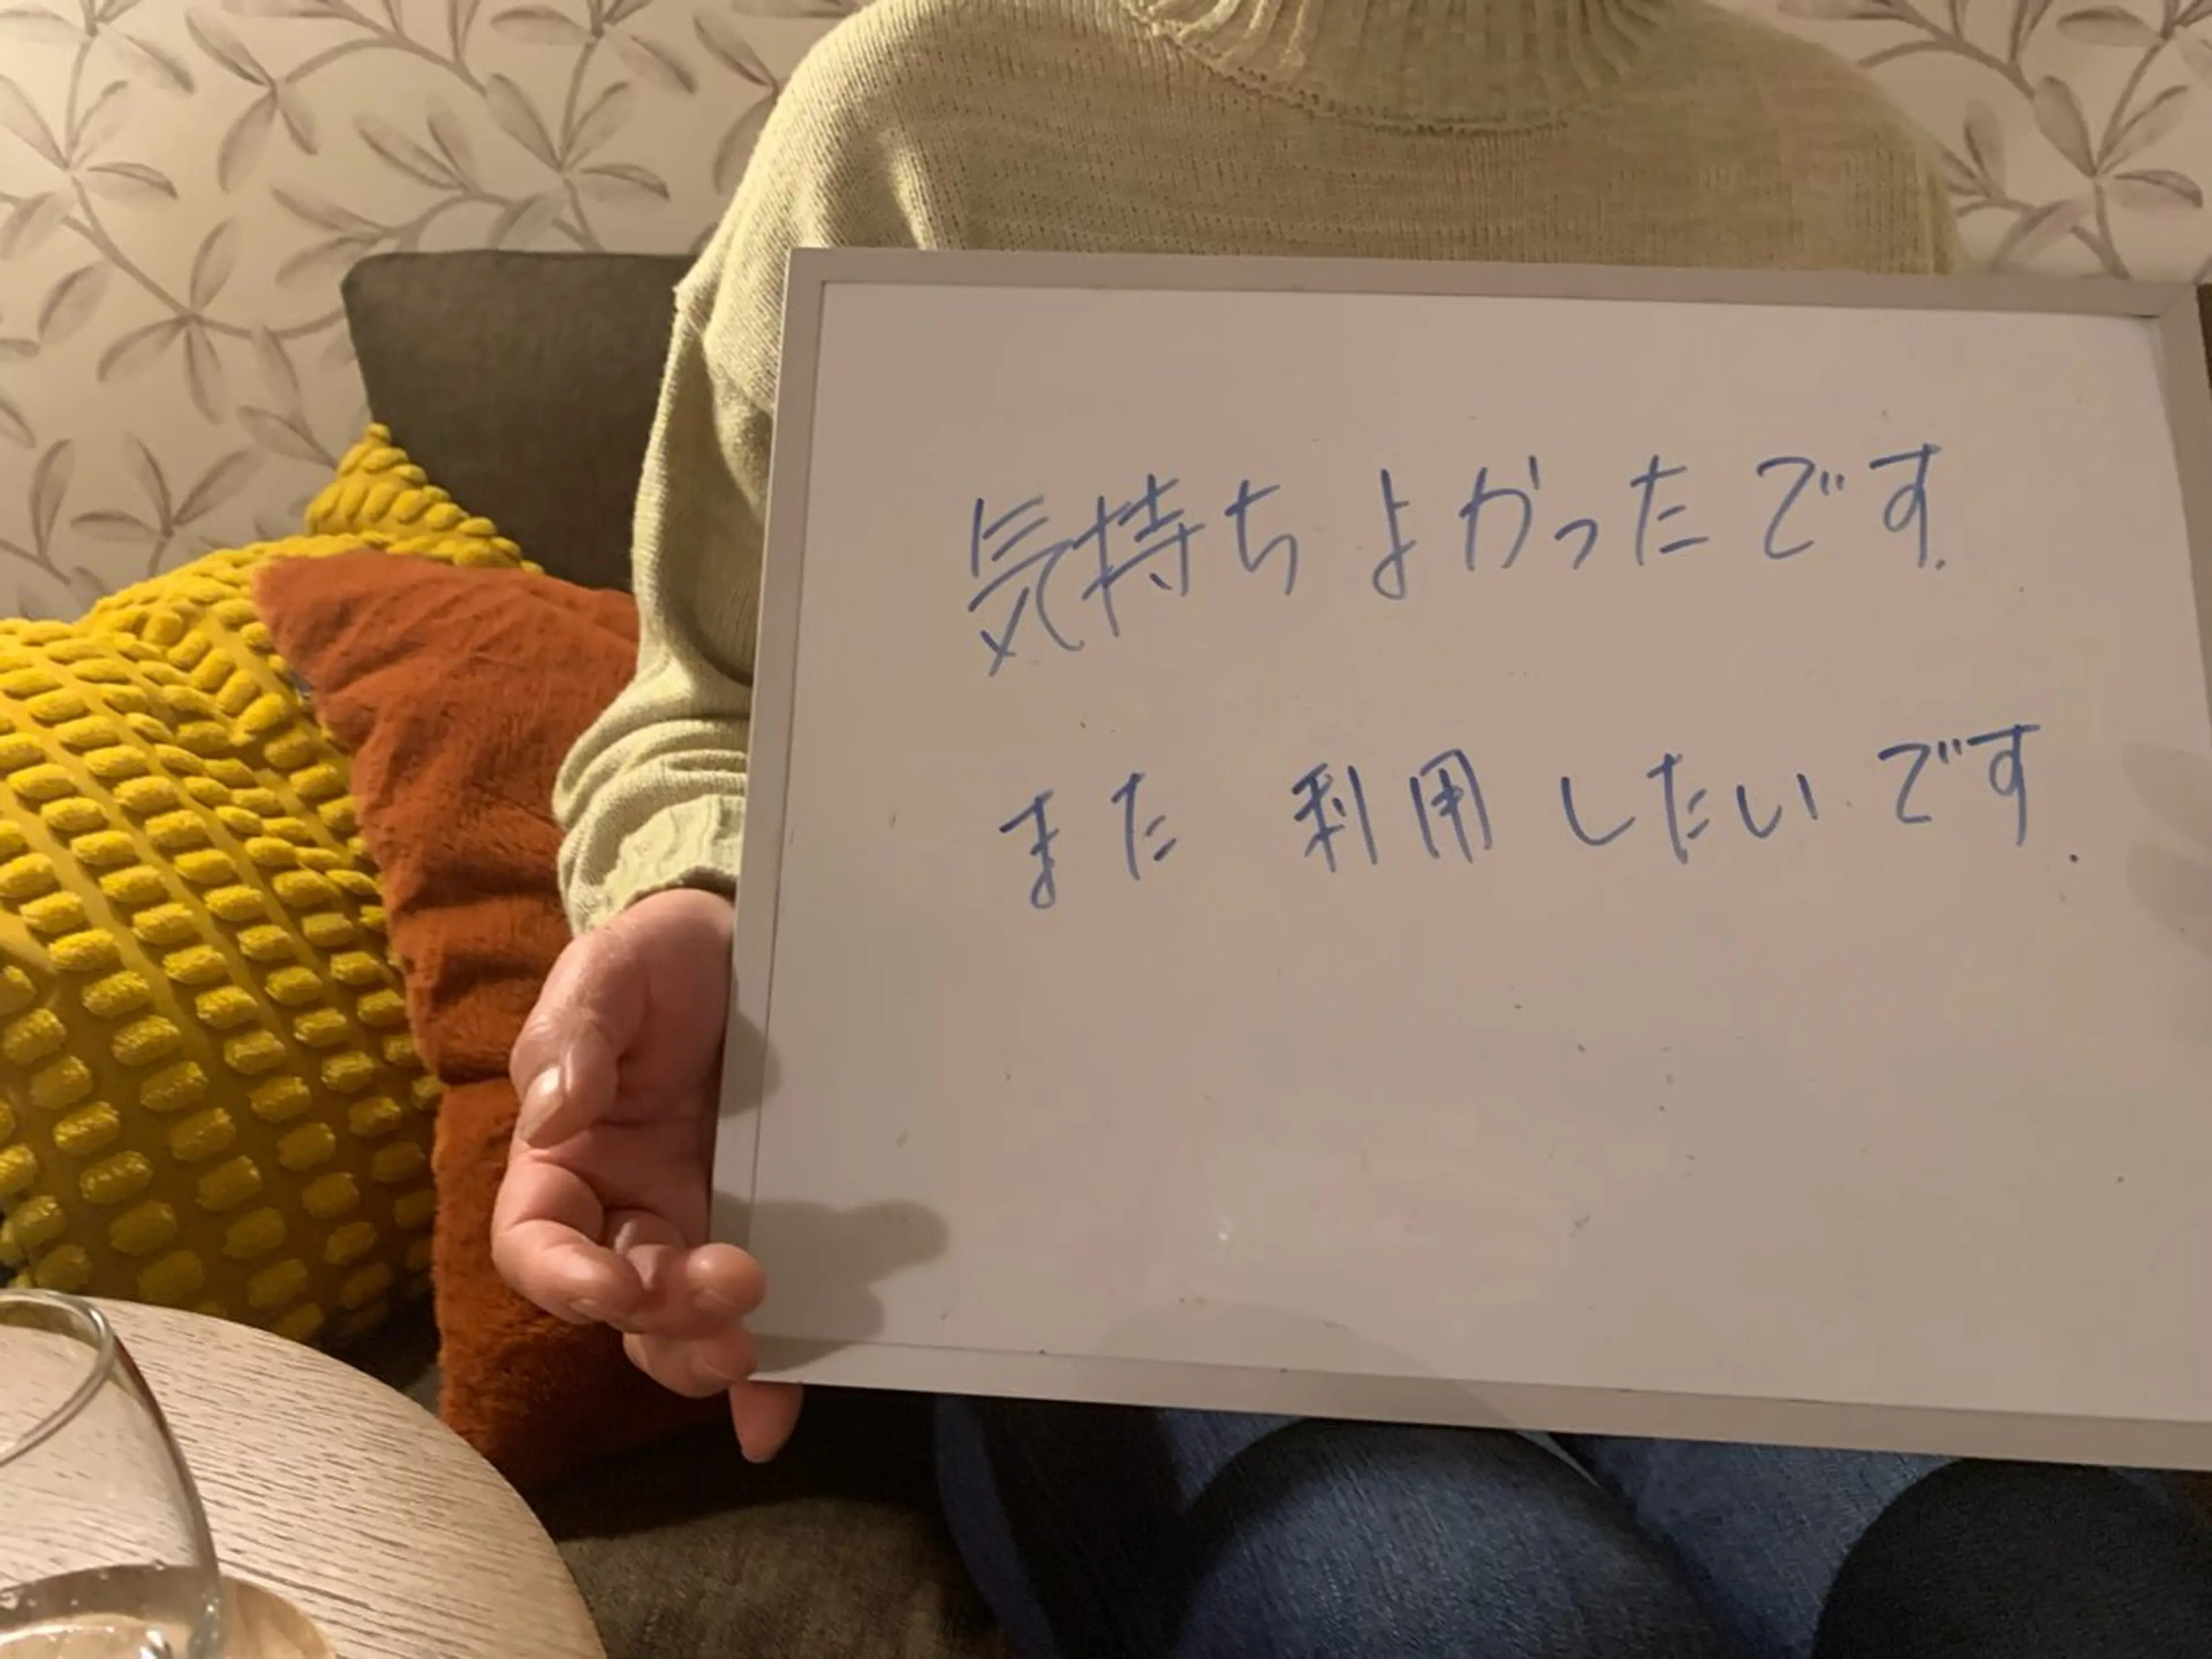 気持ちよかったです.
また利用したいです.